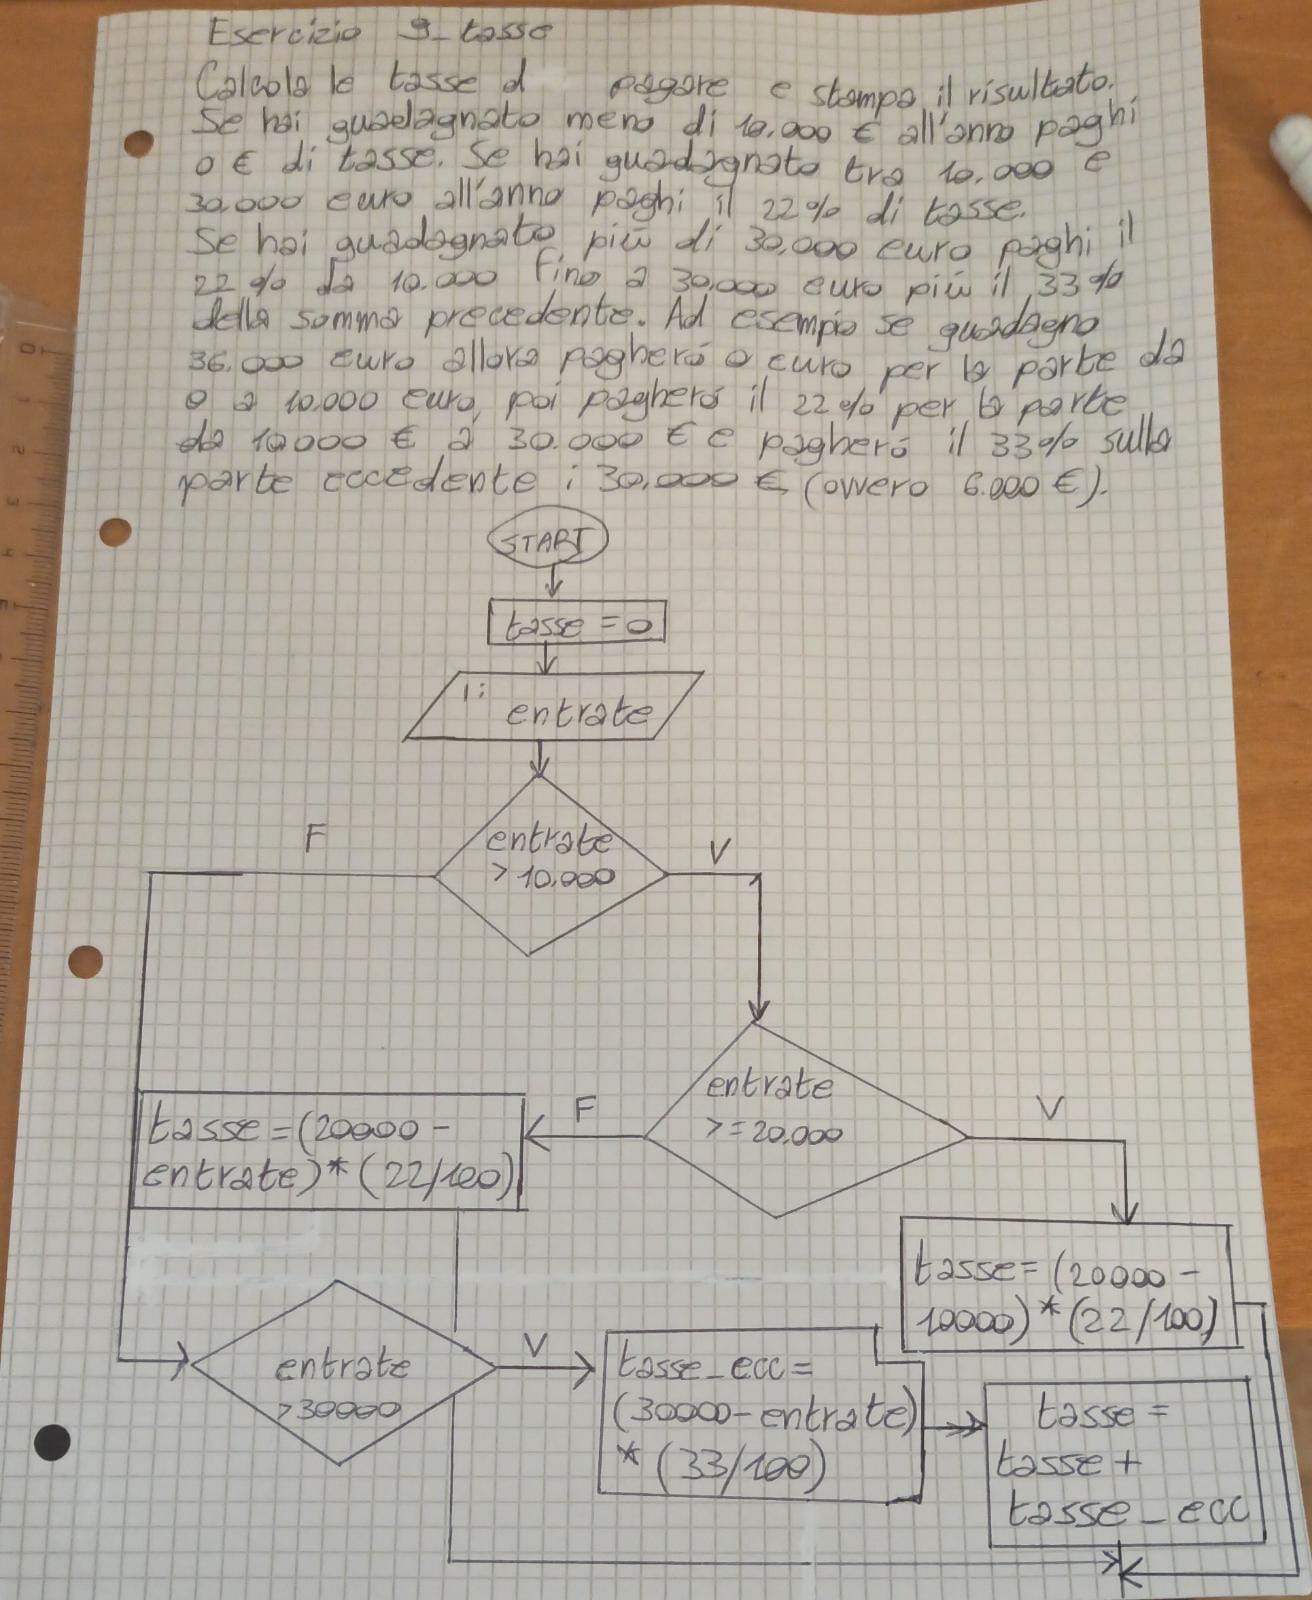 Esercizio 9_tasse
Calcola le tasse d pagare e stampa il risultato.
Se hai guadagnato meno di 10.000 € all'anno paghi
0 € di tasse. Se hai guadagnato tra 10.000 e
30.000 euro all'anno paghi il 22% di tasse.
Se hai guadagnato più di 30.000 euro paghi il
22% da 10.000 fino a 30.000 euro più il 33%
della somma precedente. Ad esempio se guadagno
36.000 euro allora pagheró 0 euro per la parte da
0 a 10.000 euro, poi pagheró il 22% per la parte
da 10000 € a 30.000 € e pagheró il 33% sulla
parte eccedente i 30.000 € (ovvero 6.000 €).
START
tasse = 0
I:
entrate
entrate
> 10.000
F
V
entrate
>= 20.000
F
V
tasse = (20000 -
entrate) * (22/100)
tasse = (20000 -
10000) * (22/100)
entrate
> 30000
V
tasse_ecc =
(30000 - entrate)
* (33/100)
tasse =
tasse +
tasse_ecc